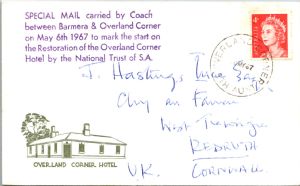 SPECIAL MAIL carried by Coach
between Barmera & Overland Corner
on May 6th 1967 to mark the start on
the Restoration of the Overland Corner
Hotel by the National Trust of S.A.
J. Hastings
Chy an
West
REDRUTH
CORNWALL
U.K.
OVERLAND CORNER HOTEL